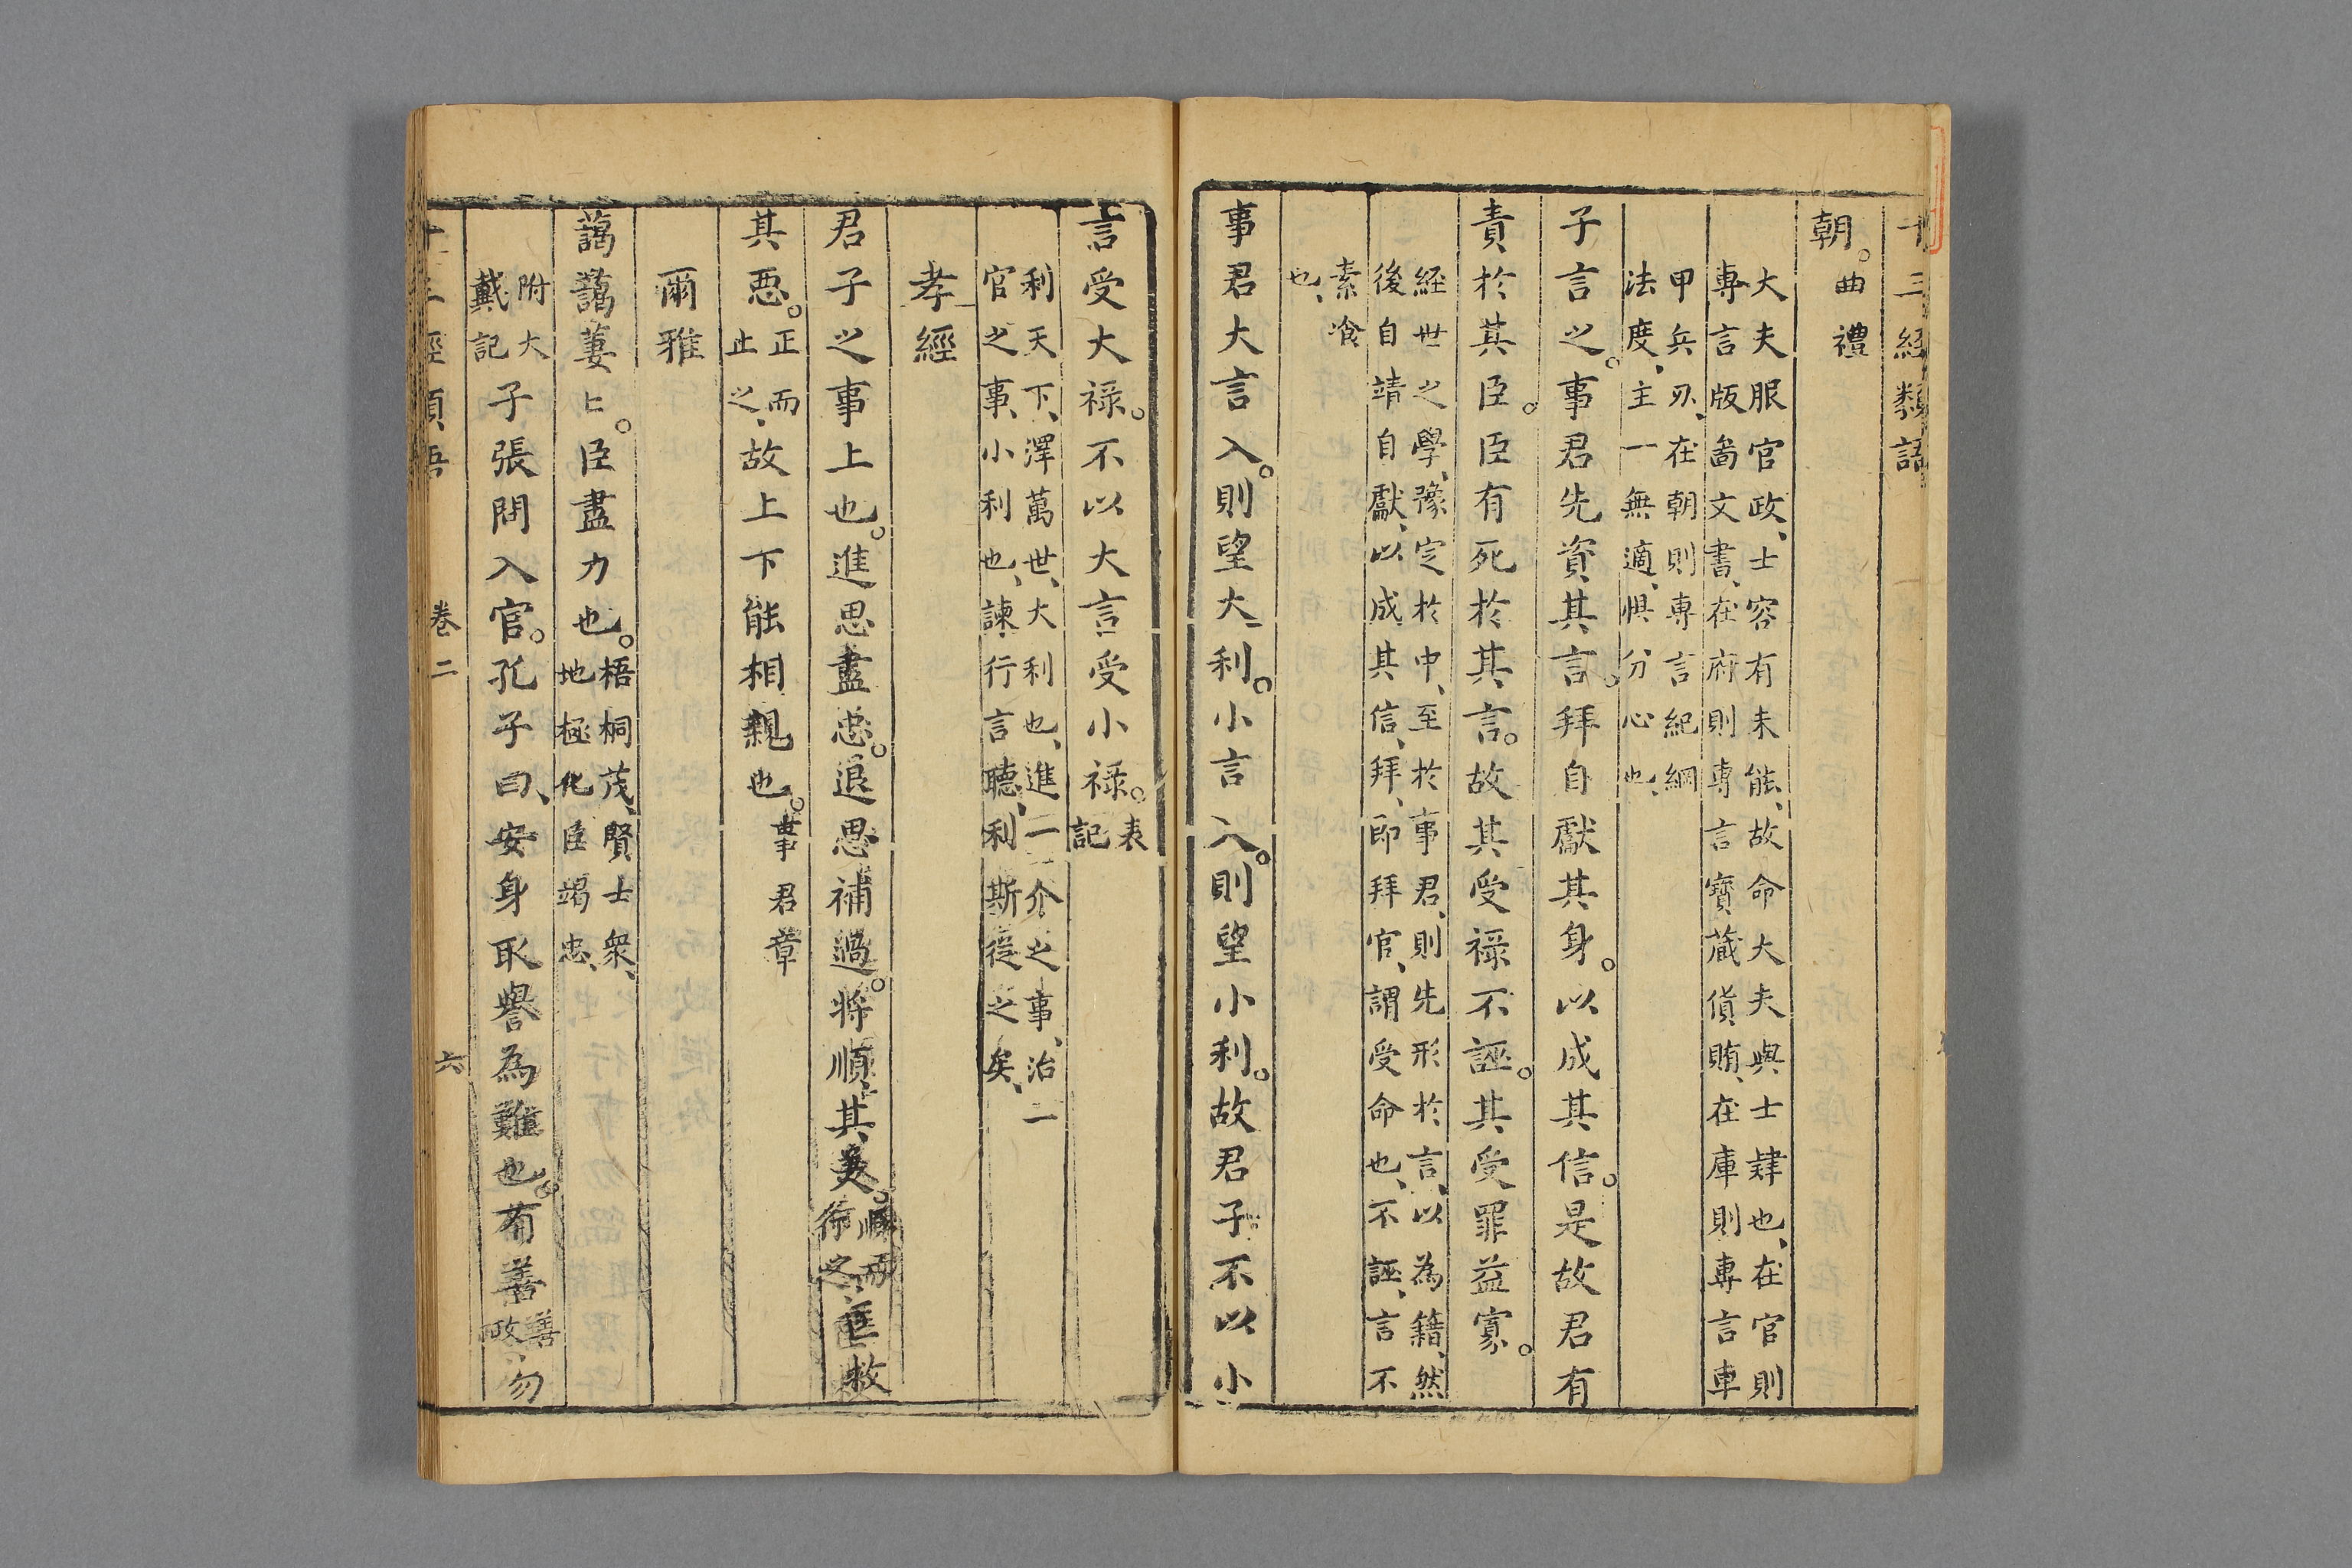 十三經類語
朝。曲禮
大夫服官政、士容有未能、故命大夫與士肄也、在官則
專言版啚文書、在府則專言寶蔵貨賄、在庫則專言車
甲兵刃、在朝則專言紀綱
法度、主一無適、惧分心也、
子言之。事君先資其言。拜自獻其身。以成其信。是故君有
責於其臣。臣有死於其言。故其受禄不誣。其受罪益寡。
經世之學、豫定於中、至於事君、則先形於言、以為籍、然
後自靖自獻、以成其信、拜、即拜官、謂受命也、不誣、言不
素飡
也、
事君大言入。則望大利。小言入。則望小利。故君子不以小
言受大禄。不以大言受小禄。表記
利天下、澤萬世、大利也、進一介之事、治一
官之事、小利也、諫行言聽、利斯從之矣、
孝經
君子之事上也。進思盡忠。退思補過。将順其美。順而行之、匡救
其惡。正而止之、故上下能相親也。事君章
爾雅
藹藹萋〻。臣盡力也。梧桐茂、賢士衆、
地極化臣竭忠、
附大戴記 子張問入官。孔子曰、安身取譽為難也。有善善政、勿
十三經類語 卷二 六